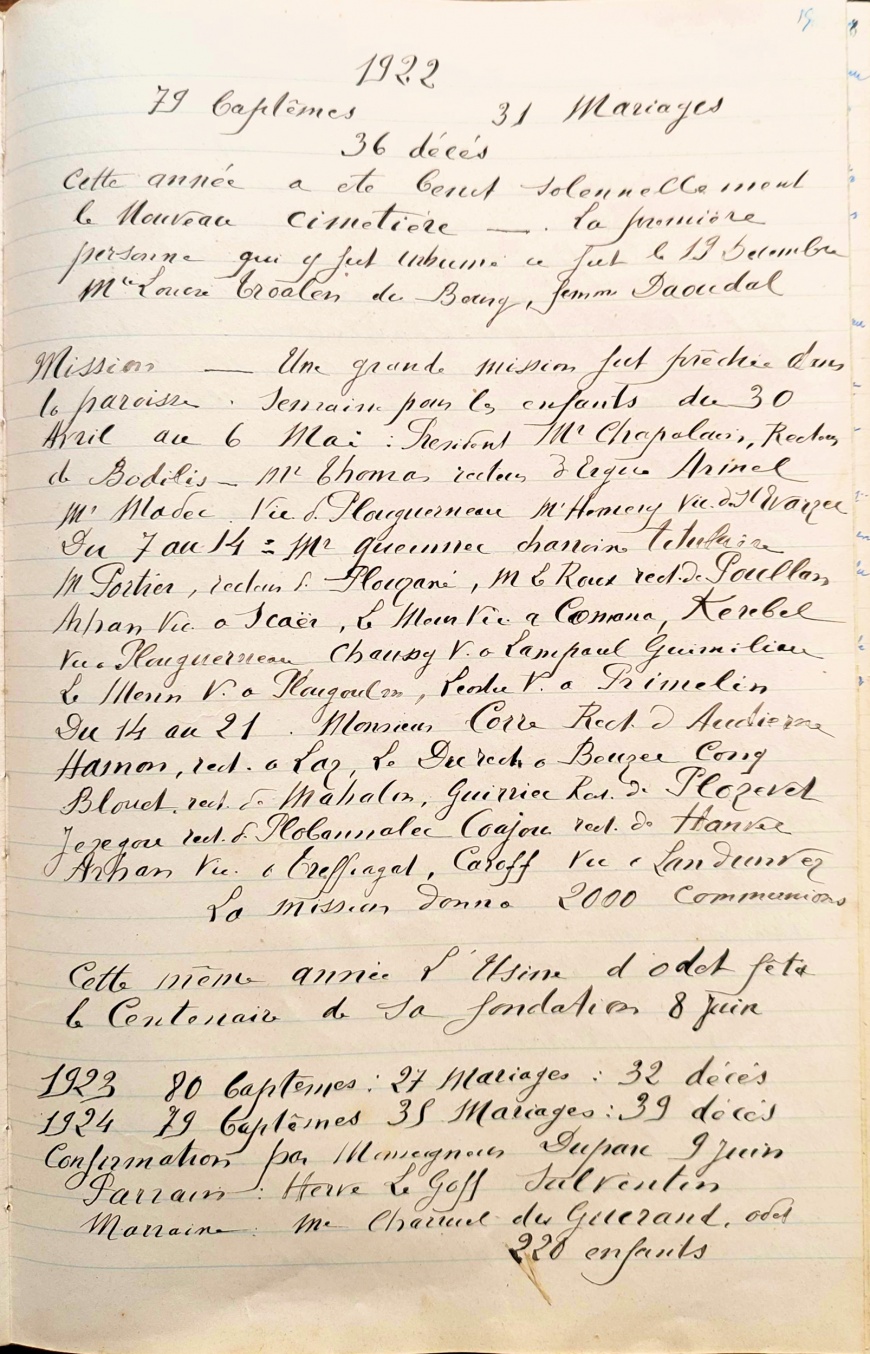 1922
79 baptêmes 31 Mariages
36 décés
Cette année a ete benit solennellement
le Nouveau cimetière —. La première
personne qui y fut inhumé ce fut le 19 Decembre
Mme Louise Troalen du Bourg, femme Daoudal
Mission — Une grande mission fut prêchée dans
la paroisse. Semaine pour les enfants du 30
Avril au 6 Mai : President Mr Chapalain, Recteur
de Bodilis — Mr Thomas recteur d'Ergue Armel
Mr Madec Vic d. Plouguerneau Mr Hemery Vic. d. St Evarzec
Du 7 au 14 = Mr queinnec chanoine titulaire
M Portier, recteur d. Plouzané, M Le Roux rect. de Poullan
Arhan Vic. a Scaër, Le Meur Vic a Comana, Kerebel
Vic a Plouguerneau Chaussy V. a Lampaul Guimiliau
Le Menn V. a Plougoulm, V. a Primelin
Du 14 au 21. Monsieur Corre Rect. d Audierne
Hamon, rect. a Laz, Le Du rect. a Beuzec Conq
Blouet, rect. de Mahalon, Guirriec Rec. de Plozevet
Jezegou rect. d. Plobannalec Coajou rect. de Hanvec
Arhan Vic. a Treffiagat, Caroff Vic a Landunvez
La mission donna 2000 communions
Cette même année L'Usine d odet fêta
le Centenaire de sa fondation 8 Juin
1923 80 baptêmes : 27 Mariages : 32 décés
1924 79 baptêmes 35 Mariages : 39 décés
Confirmation par Monseigneur Duparc 9 Juin
Parrain : Herve Le Goff Sulventin
Marraine : Me Charuel du Guerand. odet
220 enfants